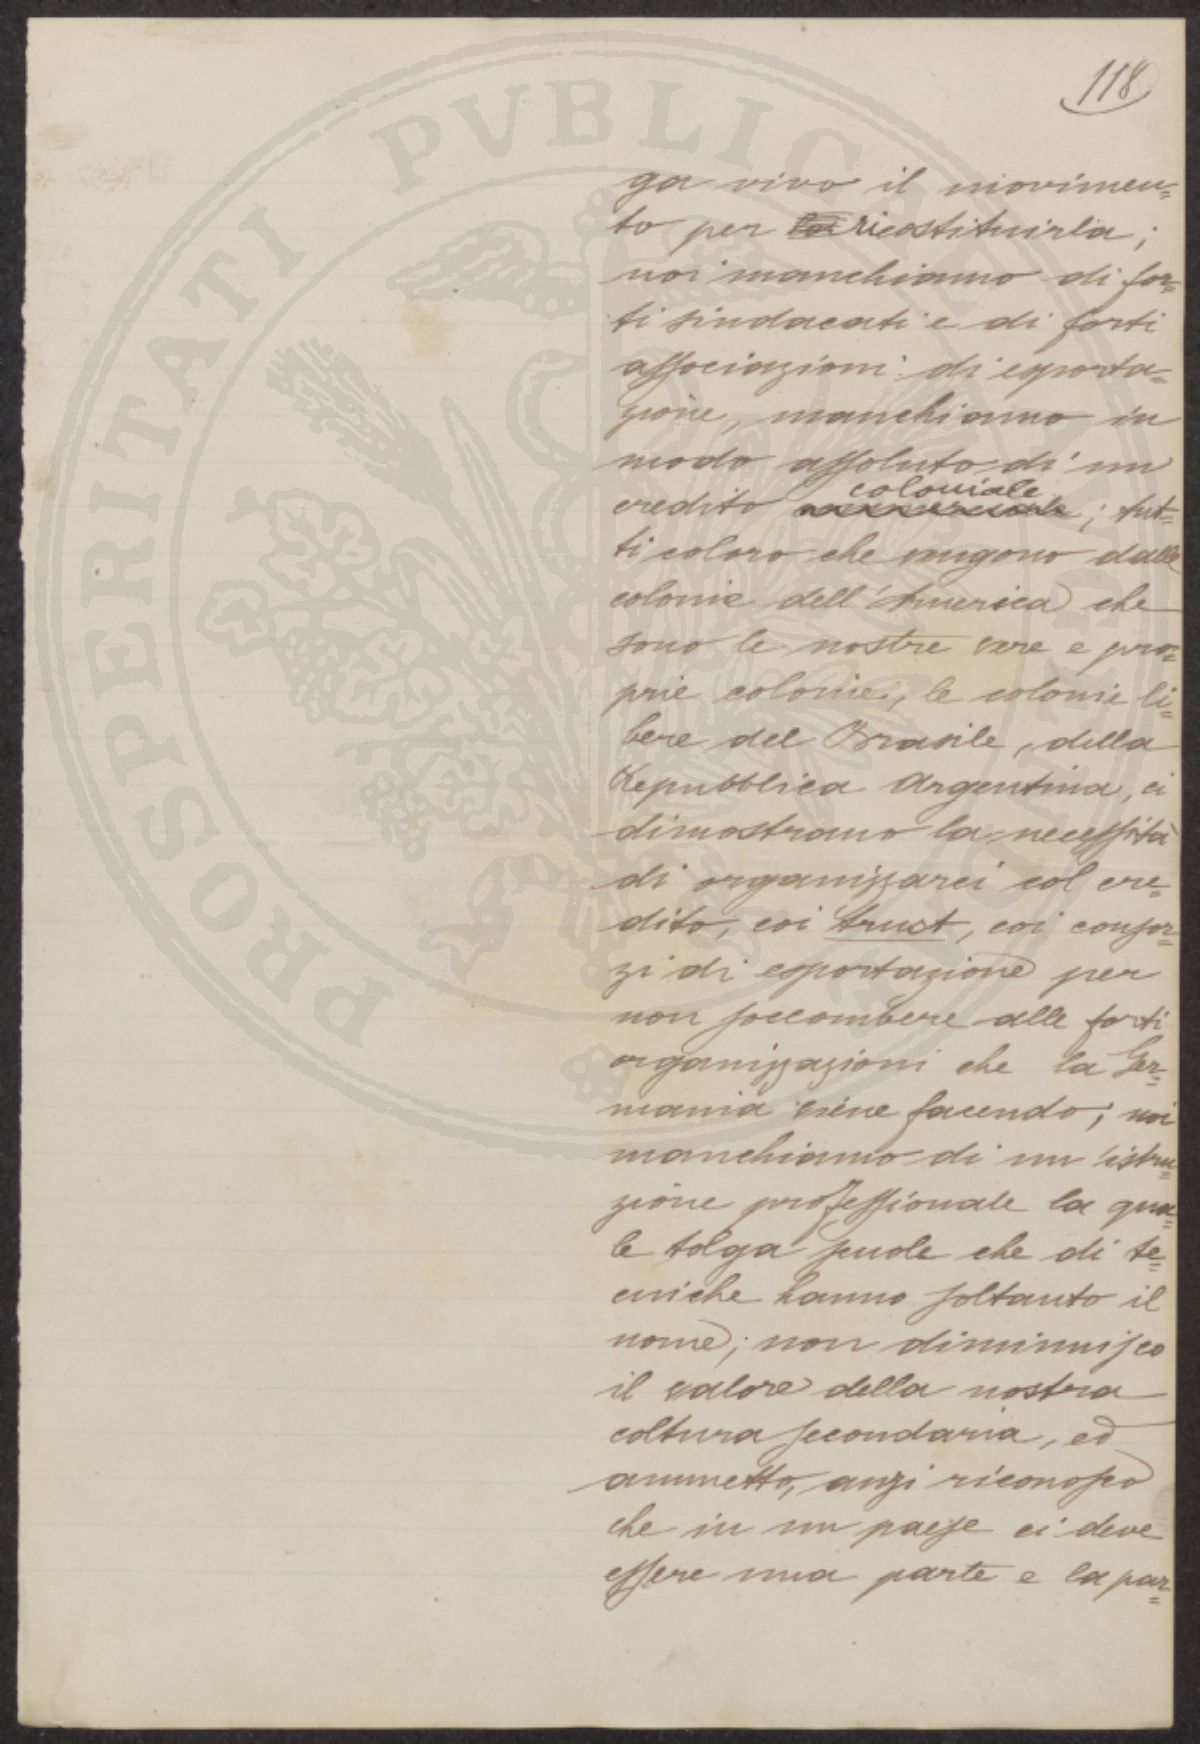 118
ga vivo il movimen=
to per ricostituirla;
noi manchiamo di for=
ti sindacati e di forti
associazioni di esporta=
zione, manchiamo in
modo assoluto di un
credito coloniale; tut=
ti coloro che vengono dalle
colonie dell'America che
sono le nostre vere e pro=
prie colonie, le colonie li=
bere del Brasile, della
Repubblica Argentina, ci
dimostrano la necessità
di organizzarci col cre=
dito, coi trust, coi consor=
zi di esportazione per
non soccombere alle forti
organizzazioni che la Ger=
mania viene facendo; noi
manchiamo di un'istru=
zione professionale la qua=
le tolga scuole che di te=
cniche hanno soltanto il
nome; non diminuisco
il valore della nostra
coltura secondaria, ed
ammetto, anzi riconosco
che in un paese ci deve
essere una parte e la par=
PROSPERITATI PVBLICAE